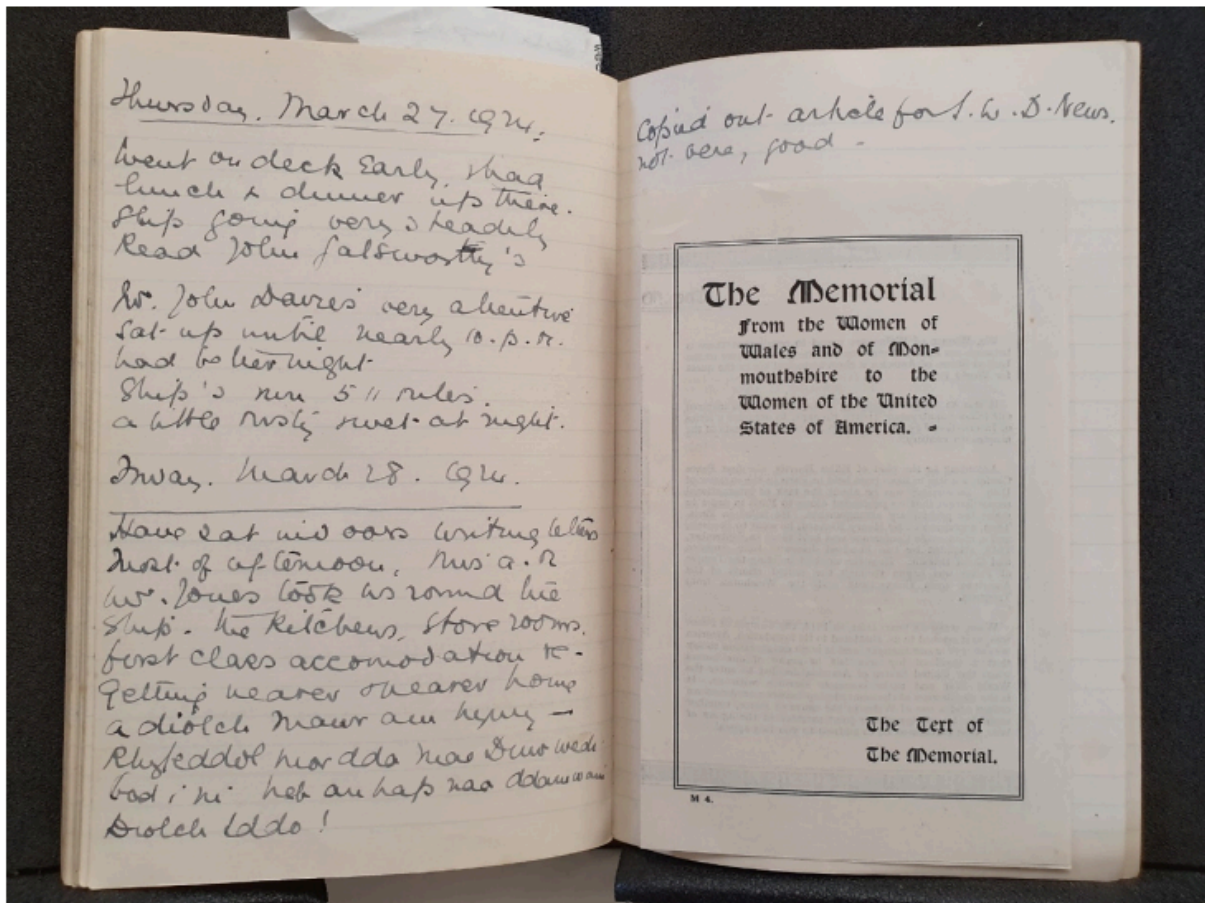 Thursday. March 27. 1924.
Went on deck Early, & had
lunch & dinner up there.
Ship going very steadily
Read John Galsworthy's
Mr. John Davies very attentive
Sat up until nearly 10. p.m.
had better night
Ship's run 511 miles.
a little misty & wet at night.
Friday. March 28. 1924.
Have sat indoors writing letters
most of afternoon,
Mr. Jones took us round the
Ship. the Kitchens, Store rooms,
first class accomodation
Getting nearer & nearer home
a diolch mawr am hynny —
Rhyfeddol mor dda mae Duw wedi
bod i ni heb anhap na damwain
Diolch Iddo!
Copied out article for S. W. D. News.
not very good -
The Memorial
From the Women of
Wales and of Mon-
mouthshire to the
Women of the United
States of America. -
The Text of
The Memorial.
M 4.